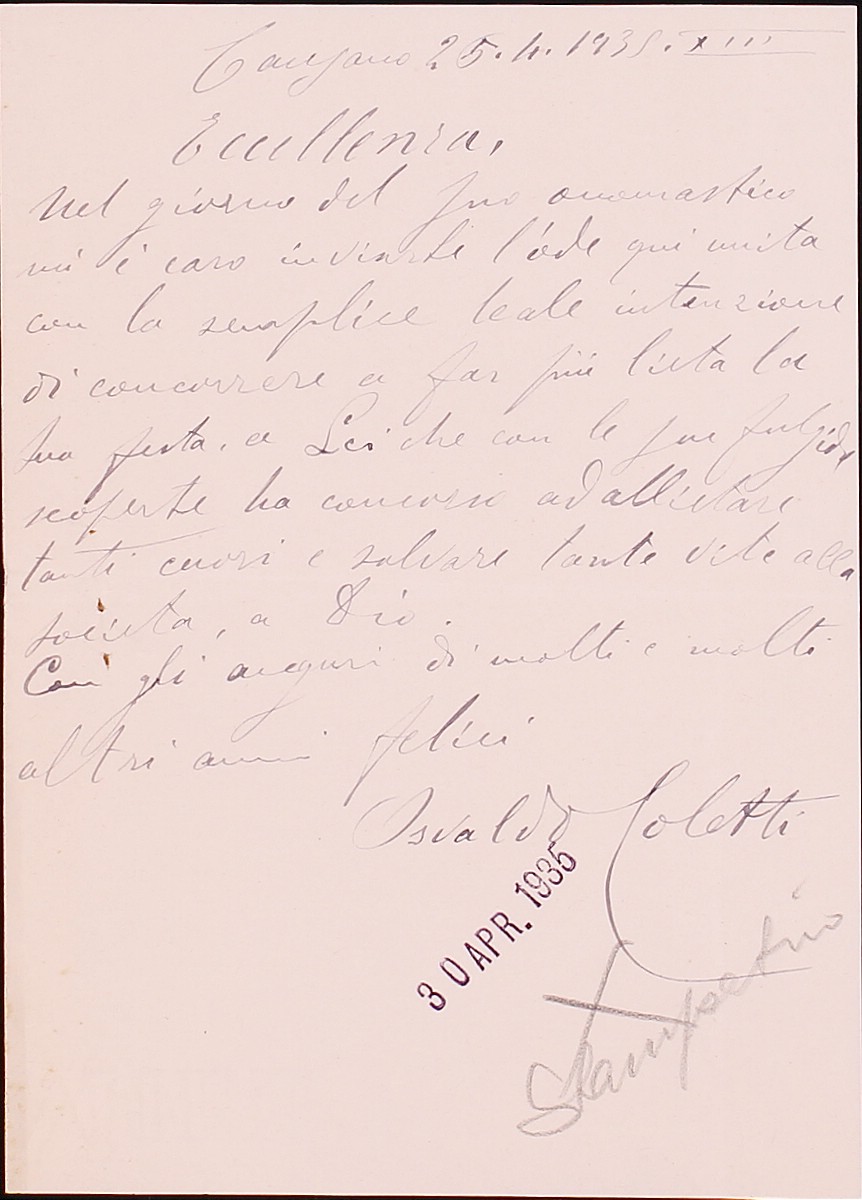 Cangano 25.4.1935.XIII
Eccellenza,
Nel giorno del suo onomastico
mi è caro inviarle l'ode qui unita
con la semplice leale intenzione
di concorrere a far più lieta la
sua festa, a Lei che con le sue fulgide
scoperte ha concorso ad allietare
tanti cuori e salvare tante vite alla
società, a Dio.
Con gli auguri di molti e molti
altri anni felici
Osvaldo Coletti
30 APR. 1935
Stampatino